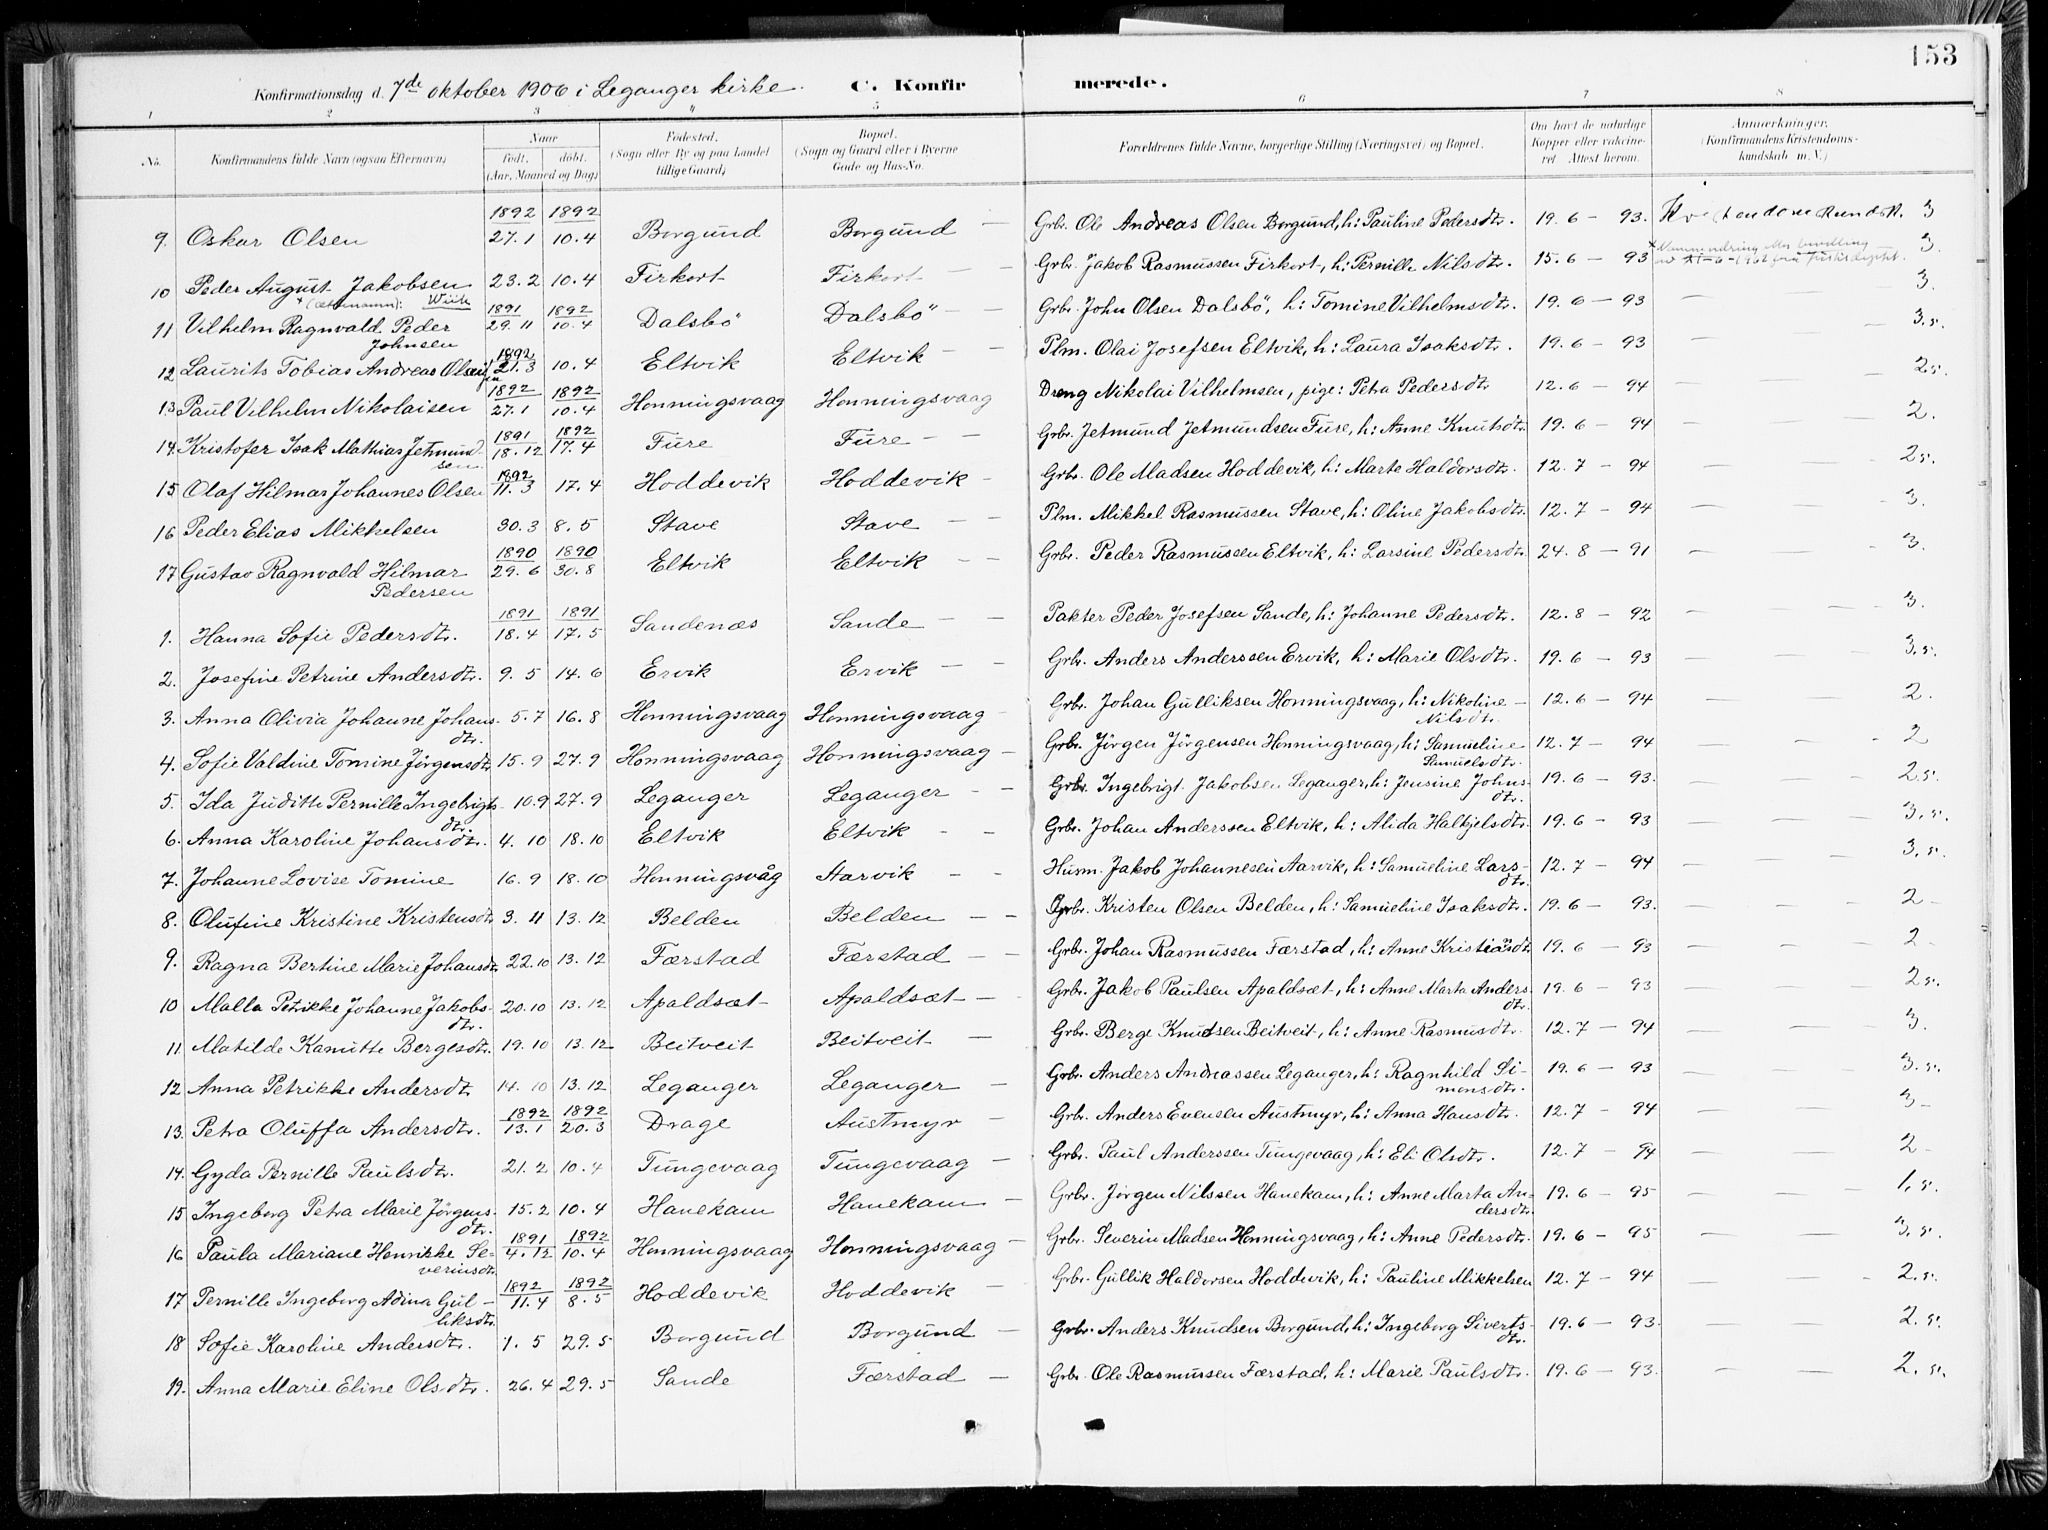 153
Konfirmationsdag d. 7de oktober 1906 i Leganger kirke. C. Konfirmerede.
1 2 3 4 5 6 7 8
No. Konfirmandens fulde Navn (ogsaa Efternavn) Naar født, døbt. (Aar, Maaned og Dag) Fødested. (Sogn eller By og paa Landet tillige Gaard) Bopæl. (Sogn og Gaard eller i Byerne Gade og Hus-No. Forældrenes fulde Navne, borgerlige Stilling (Næringsvei) og Bopæl. Om havt de naturlige Kopper eller vakcineret. Attest herom. Anmærkninger. (Konfirmandens Kristendomskundskab m. V.)
9. Oskar Olsen 1892 27.1 1892 10.4 Borgund Borgund — Grbr. Ole Andreas Olsen Borgund, h: Pauline Pedersdtr. 19.6 — 93. Kristendomskundsk. 3
10 Peder August Jakobsen 23.2 10.4 Firkort Firkort — Grbr. Jakob Rasmussen Firkort, h: Pernille Nilsdtr. 15.6 — 93 3.
x (ættenamn): Wiik
11 Vilhelm Ragnvald Peder Johnsen 1891 29.11 1892 10.4 Dalsbö Dalsbö — Grbr. John Olsen Dalsbö, h: Tomine Vilhelmsdtr. 19.6 — 93 — 3.
12 Laurits Tobias Andreas Olsen 1892 21.3 10.4 Eltvik Eltvik — Plm. Olai Josefsen Eltvik, h: Laura Isaksdtr. 19.6 — 93 — 3.s.
13 Paul Vilhelm Nikolaisen 1892 27.1 1892 10.4 Honningsvaag Honningsvaag Dreng Nikolai Vilhelmsen, pige: Petra Pedersdtr 12.6 — 94 — 2s.
14. Kristofer Isak Mathias Jetmundsen 1891 18.12 1892 17.4 Fure Fure — Grbr. Jetmund Jetmundsen Fure, h: Anne Knutsdtr. 19.6 — 94 — 2.
15 Olaf Hilmar Johannes Olsen 1892 11.3 17.4 Hoddevik Hoddevik - Grbr. Ole Madsen Hoddevik, h: Marte Haldorsdtr. 12.7 — 94 — 2s.
16 Peder Elias Mikkelsen 30.3 8.5 Stave Stave — Plm. Mikkel Rasmussen Stave, h: Oline Jakobsdtr. 12.7 — 94 — 3.
17 Gustav Ragnvald Hilmar Pedersen 1890 29.6 1890 30.8 Eltvik Eltvik — Grbr. Peder Rasmussen Eltvik, h: Larsine Pedersdtr 24.8 — 91 — 3.
1. Hanna Sofie Pedersdtr. 1891 18.4 1891 17.5 Sandenæs Sande — Pakter Peder Josefsen Sande, h: Johanne Pedersdtr. 12.8 — 92 — 3.
2. Josefine Petrine Andersdtr. 9.5 14.6 Ervik Ervik — Grbr. Anders Anderssen Ervik, h: Marie Olsdtr. 19.6 — 93 — 3.s.
3. Anna Olivia Johanne Johansdtr. 5.7 16.8 Honningsvaag Honningsvaag Grbr. Johan Gulliksen Honningsvaag, h: Nikoline Nilsdtr. 12.6 — 94 — 2.
4. Sofie Valdine Tomine Jörgensdtr 15.9 27.9 Honningsvaag Honningsvaag — Grbr. Jörgen Jörgensen Honningsvaag, h: Samueline Samuelsdtr. 12.7 — 94 — 2
5. Ida Juditte Pernille Ingebrigtsdtr. 10.9 27.9 Leganger Leganger — Grbr. Ingebrigt Jakobsen Leganger, h: Jensine Johnsdtr. 19.6 — 93. — 2s.
6. Anna Karoline Johansdtr. 4.10 18.10 Eltvik Eltvik — Grbr. Johan Anderssen Eltvik, h: Alida Halkjelsdtr. 19.6 — 93 — 3.s.
7. Johanne Lovise Tomine 16.9 18.10 Honningsvåg Aarvik — Husm. Jakob Johannesen Aarvik, h: Samueline Larsdtr. 12.7 — 94 — 3.s.
8. Olufine Kristine Kristensdtr 3.11 13.12 Belden Belden — Grbr. Kristen Olsen Belden, h: Samueline Isaksdtr. 19.6 — 93. — 2
9. Ragna Bertine Marie Johansdtr. 22.10 13.12 Færstad Færstad — Grbr. Johan Rasmussen Færstad, h: Anne Kristiansdtr 19.6 — 93 — 2
10 Malla Petrikke Johanne Jakobsdtr. 20.10 13.12 Apaldsæt Apaldsæt — Grbr. Jakob Paulsen Apaldsæt, h: Anne Marta Andersdtr. 19.6 — 93 — 2s.
11. Matilde Kanutte Bergesdtr. 19.10 13.12 Beitveit Beitveit — Grbr. Berge Knudsen Beitveit, h: Anne Rasmusdtr. 12.7 — 94 — 3.
12 Anna Petrikke Andersdtr 14.10 13.12 Leganger Leganger — Grbr. Anders Andreassen Leganger, h: Ragnhild Simonsdtr. 19.6 — 93 — 3.s.
13. Petra Oluffa Andersdtr. 1892 13.1 1892 20.3 Drage Austmyr — Grbr. Anders Evensen Austmyr, h: Anna Hansdtr. 12.7 — 94 — 3
14. Gyda Pernille Paulsdtr. 21.2 10.4 Tungevaag Tungevaag — Grbr. Paul Anderssen Tungevaag, h: Eli Olsdtr. 12.7 — 94 — 2
15 Ingeborg Petra Marie Jörgensdtr. 15.2 10.4 Hanekam Hanekam — Grbr. Jörgen Nilssen Hanekam, h: Anne Marta Andersdtr. 19.6 — 95 — 1,s.
16 Paula Mariane Henrikke Severinsdtr. 1891 4.12 1892 10.4 Honningsvaag Honningsvaag — Grbr. Severin Madsen Honningsvaag, h: Anne Pedersdtr. 19.6 — 95 — 3,s.
17 Pernille Ingeborg Adina Gulliksdtr. 1892 11.4 1892 8.5 Hoddevik Hoddevik — Grbr. Gullik Haldorsen Hoddevik, h: Pauline Mikkelsen 12.7 — 94 — 2.s.
18 Sofie Karoline Andersdtr. 1.5 29.5 Borgund Borgund — Grbr. Anders Knudsen Borgund, h: Ingeborg Sivertsdtr. 19.6 — 93. — 2.s.
19. Anna Marie Eline Olsdtr. 26.4 29.5 Sande Færstad — Grbr. Ole Rasmussen Færstad, h: Marie Paulsdtr. 19.6 — 93. — 2.s.